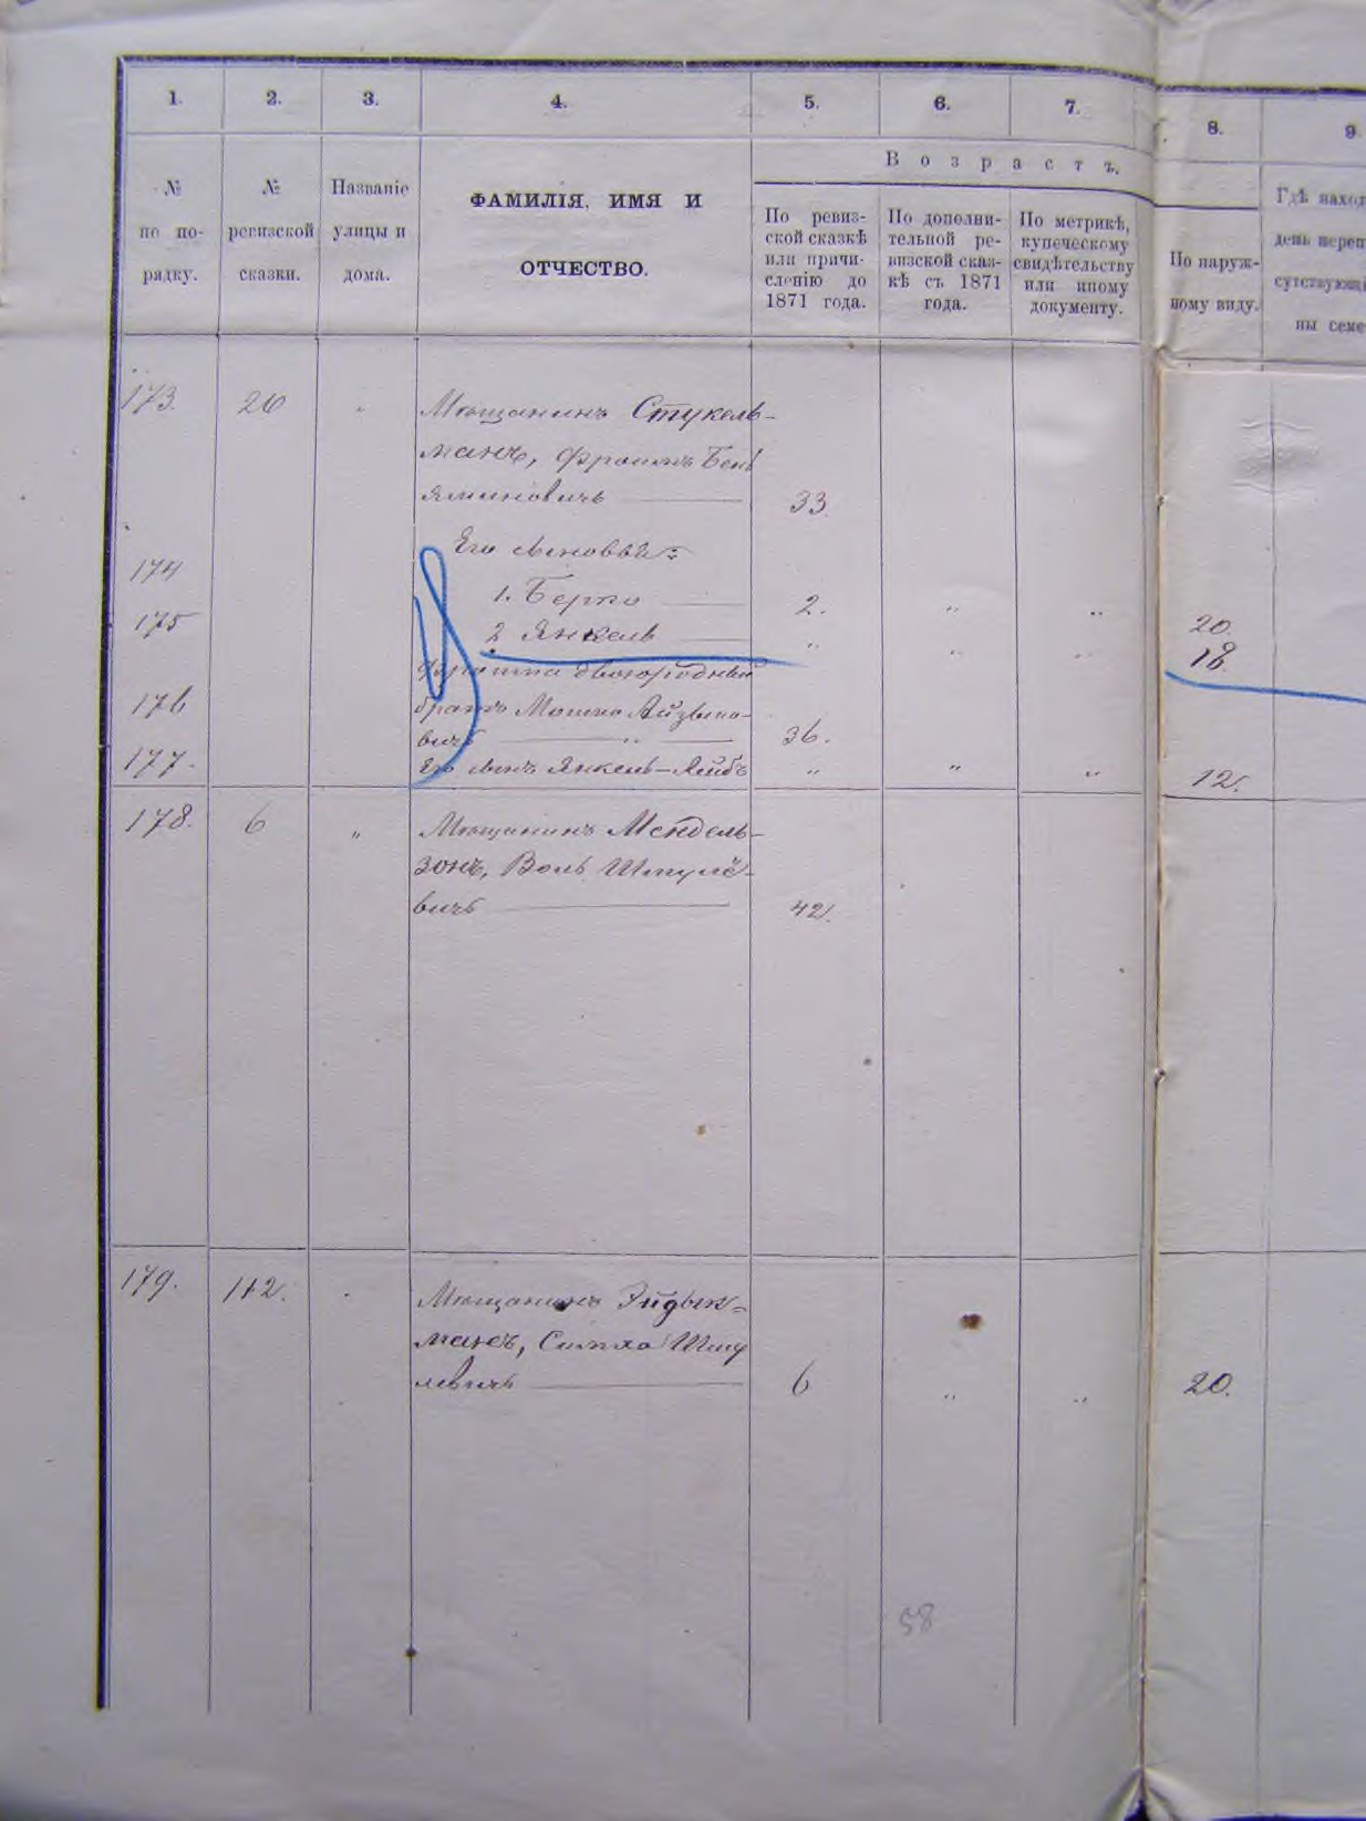 1. 2. 3. 4. 5. 6. 7. 8. 9.
Возрастъ.
№ по по-рядку.
№ ревизской сказки.
Названіе улицы и дома.
ФАМИЛІЯ, ИМЯ И
ОТЧЕСТВО.
По ревиз-
ской сказкѣ
или причи-
сленію до
1871 года.
По дополни-
тельной ре-
визской сказ-
кѣ съ 1871
года.
По метрикѣ,
купеческому
свидѣтельству
или иному
документу.
По наруж-
ному виду.
Гдѣ наход
день переп
сутствующі
ны семе
173. 26 " Мѣщанинъ Стукель-
манъ, Фроимъ Бень
яминовичъ 33.
Его сыновья:
174 1. Берко 2. " " 20.
175 2 Янкель " " " 18.
Фроима двоюродный
176 братъ Мошко Айзико-
вичъ " 36.
177. Его сынъ Янкель-Лейбъ " " " 12.
178. 6 " Мѣщанинъ Мендель-
зонъ, Воль Шмуле-
вичъ 42.
179. 112. Мѣщанинъ Эйдьль-
манъ, Симха Шму
левичъ 6 " " 20.
58